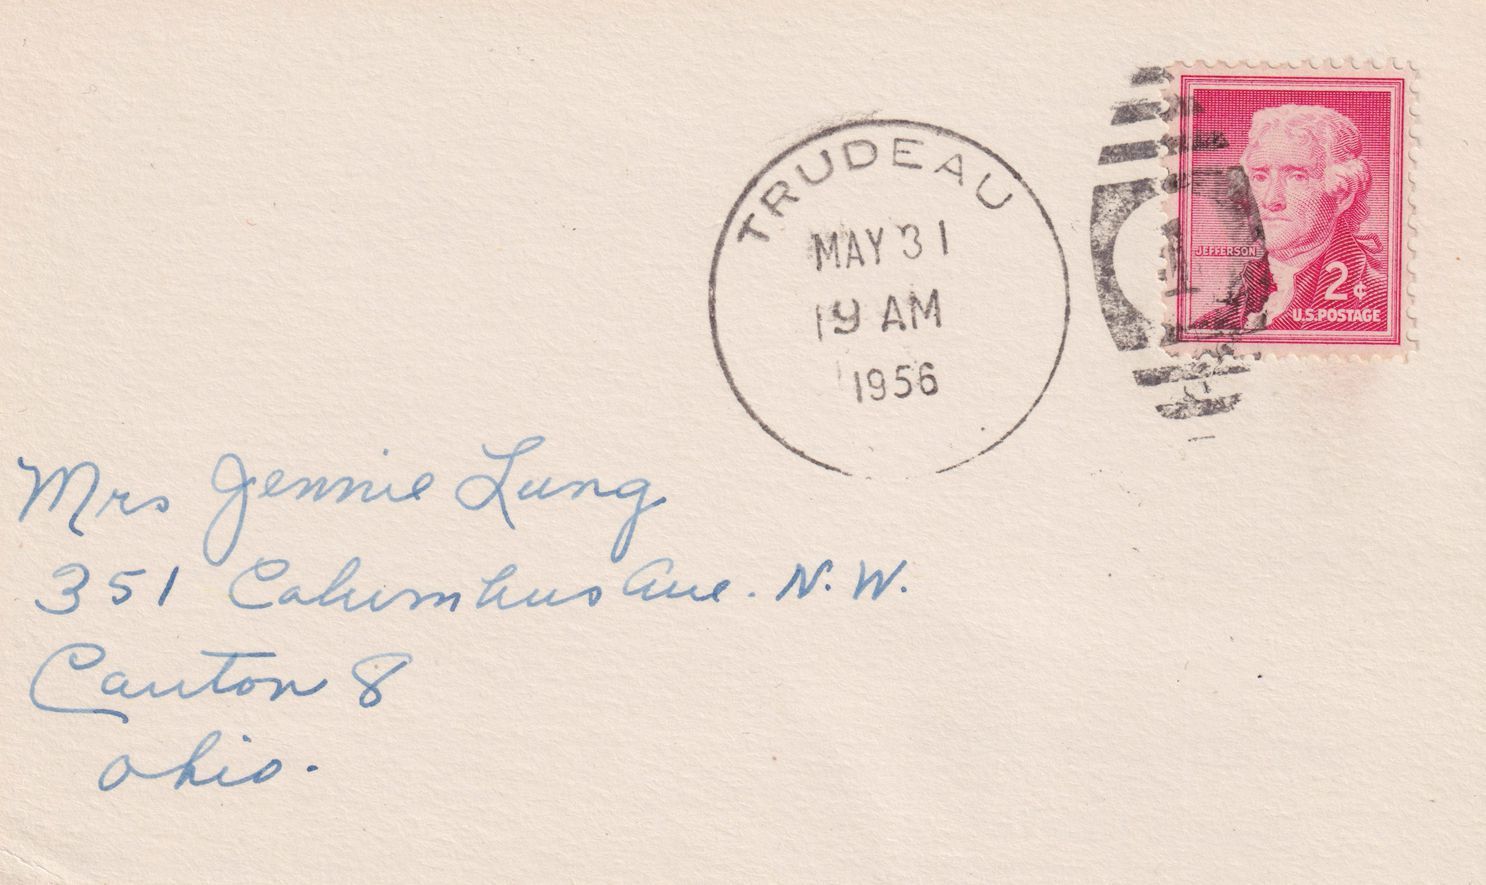 TRUDEAU
MAY 31
19 AM
1956
JEFFERSON
2¢
U.S. POSTAGE
Mrs Jennie Lung
351 Columbus Ave. N.W.
Canton 8
Ohio.